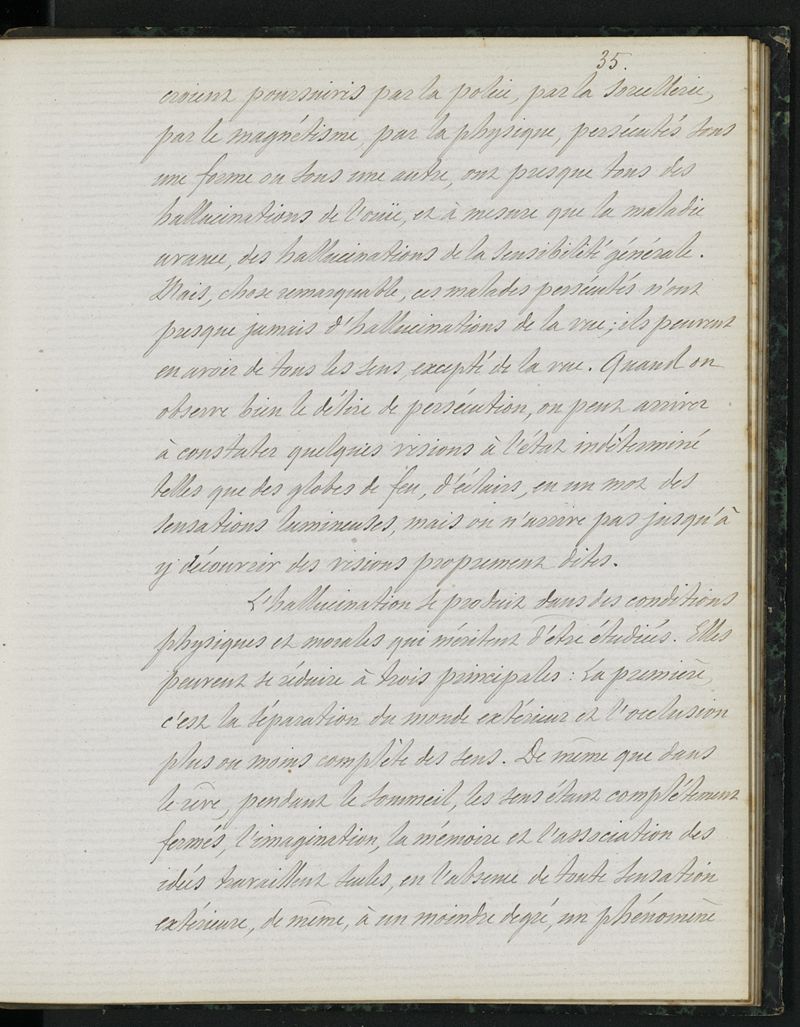 35.
croient poursuivis par la police, par la sorcellerie,
par le magnétisme, par la physique, persécutés sous
une forme ou sous une autre, ont presque tous des
hallucinations de l'ouïe, et à mesure que la maladie
avance, des hallucinations de la sensibilité générale.
Mais, chose remarquable, ces malades persécutés n'ont
presque jamais d'hallucinations de la vue; ils peuvent
en avoir de tous les sens, excepté de la vue. Quand on
observe bien le délire de persécution, on peut arriver
à constater quelques visions à l'état indéterminé
telles que des globes de feu, d'éclairs, en un mot des
sensations lumineuses, mais on n'arrive pas jusqu'à
y découvrir des visions proprement dites.
L'hallucination se produit dans des conditions
physiques et morales qui méritent d'être étudiées. Elles
peuvent se réduire à trois principales: La première,
c'est la séparation du monde extérieur et l'occlusion
plus ou moins complète des sens. De même que dans
le rêve, pendant le sommeil, les sens étant complétement
fermés, l'imagination, la mémoire et l'association des
idées travaillent seules, en l'absence de toute sensation
extérieure, de même, à un moindre degré, un phénomène